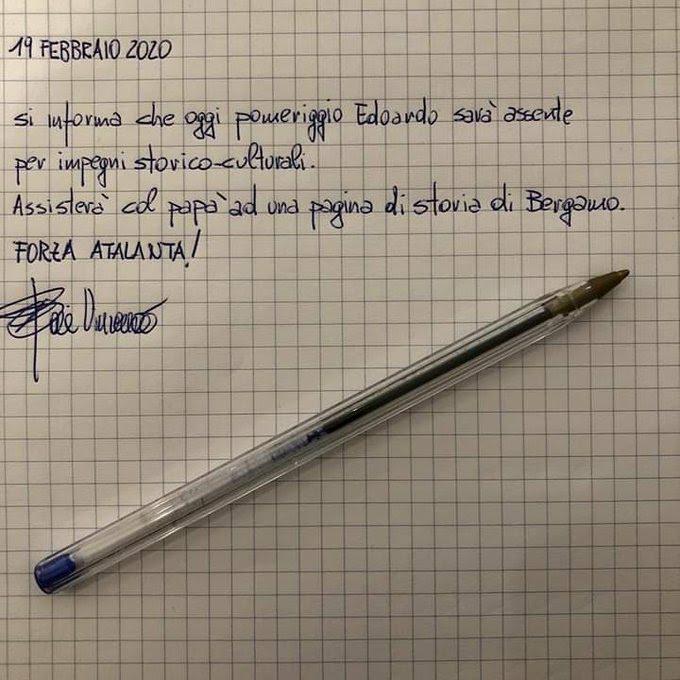 19 FEBBRAIO 2020
si informa che oggi pomeriggio Edoardo sarà assente
per impegni storico-culturali.
Assisterà col papà ad una pagina di storia di Bergamo.
FORZA ATALANTA!